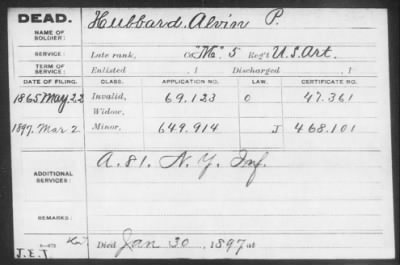 DEAD.
NAME OF SOLDIER:
Hubbard, Alvin P.
SERVICE:
Late rank, Co. "M", 5 Reg't U.S. Art.
TERM OF SERVICE:
Enlisted , 1 Discharged , 1
DATE OF FILING. CLASS. APPLICATION NO. LAW. CERTIFICATE NO.
1865 May 22 Invalid, 69.123 O 47.361
Widow,
1897. Mar 2 Minor, 649.914 J 468.101
ADDITIONAL SERVICES:
A. 81. N.Y. Inf.
REMARKS:
Died Jan 30, 1897 at
J.E.T.